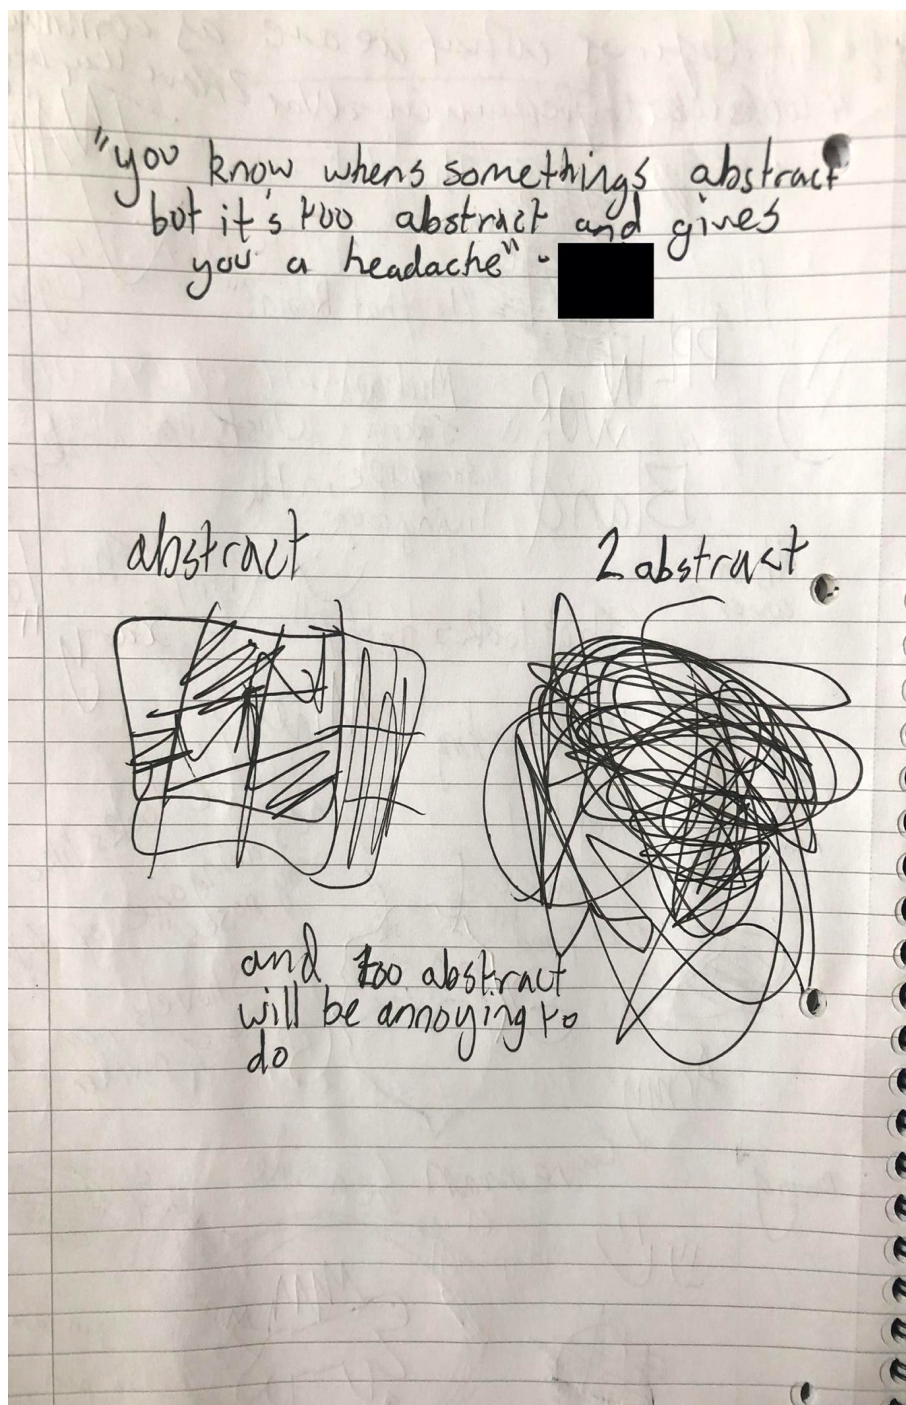 "you know whens somethings abstract
but it's too abstract and gives
you a headache" -
abstract
2 abstract
and too abstract
will be annoying to
do